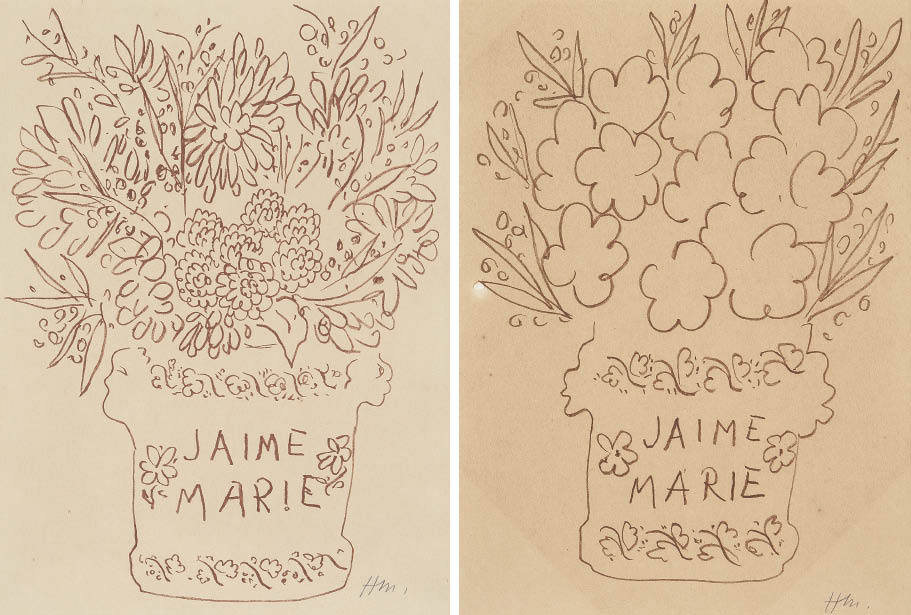 JAIME
MARIE
HM.
JAIME
MARIE
HM.